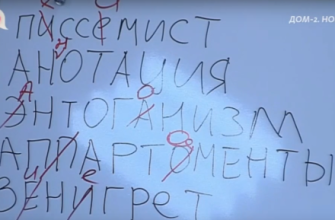 ДОМ-2. НО
ПИССЕМИСТ
АНОТАЦИЯ
ЭНТОГАНИЗМ
АППАРТОМЕНТЫ
ЗЕНИГРЕТ